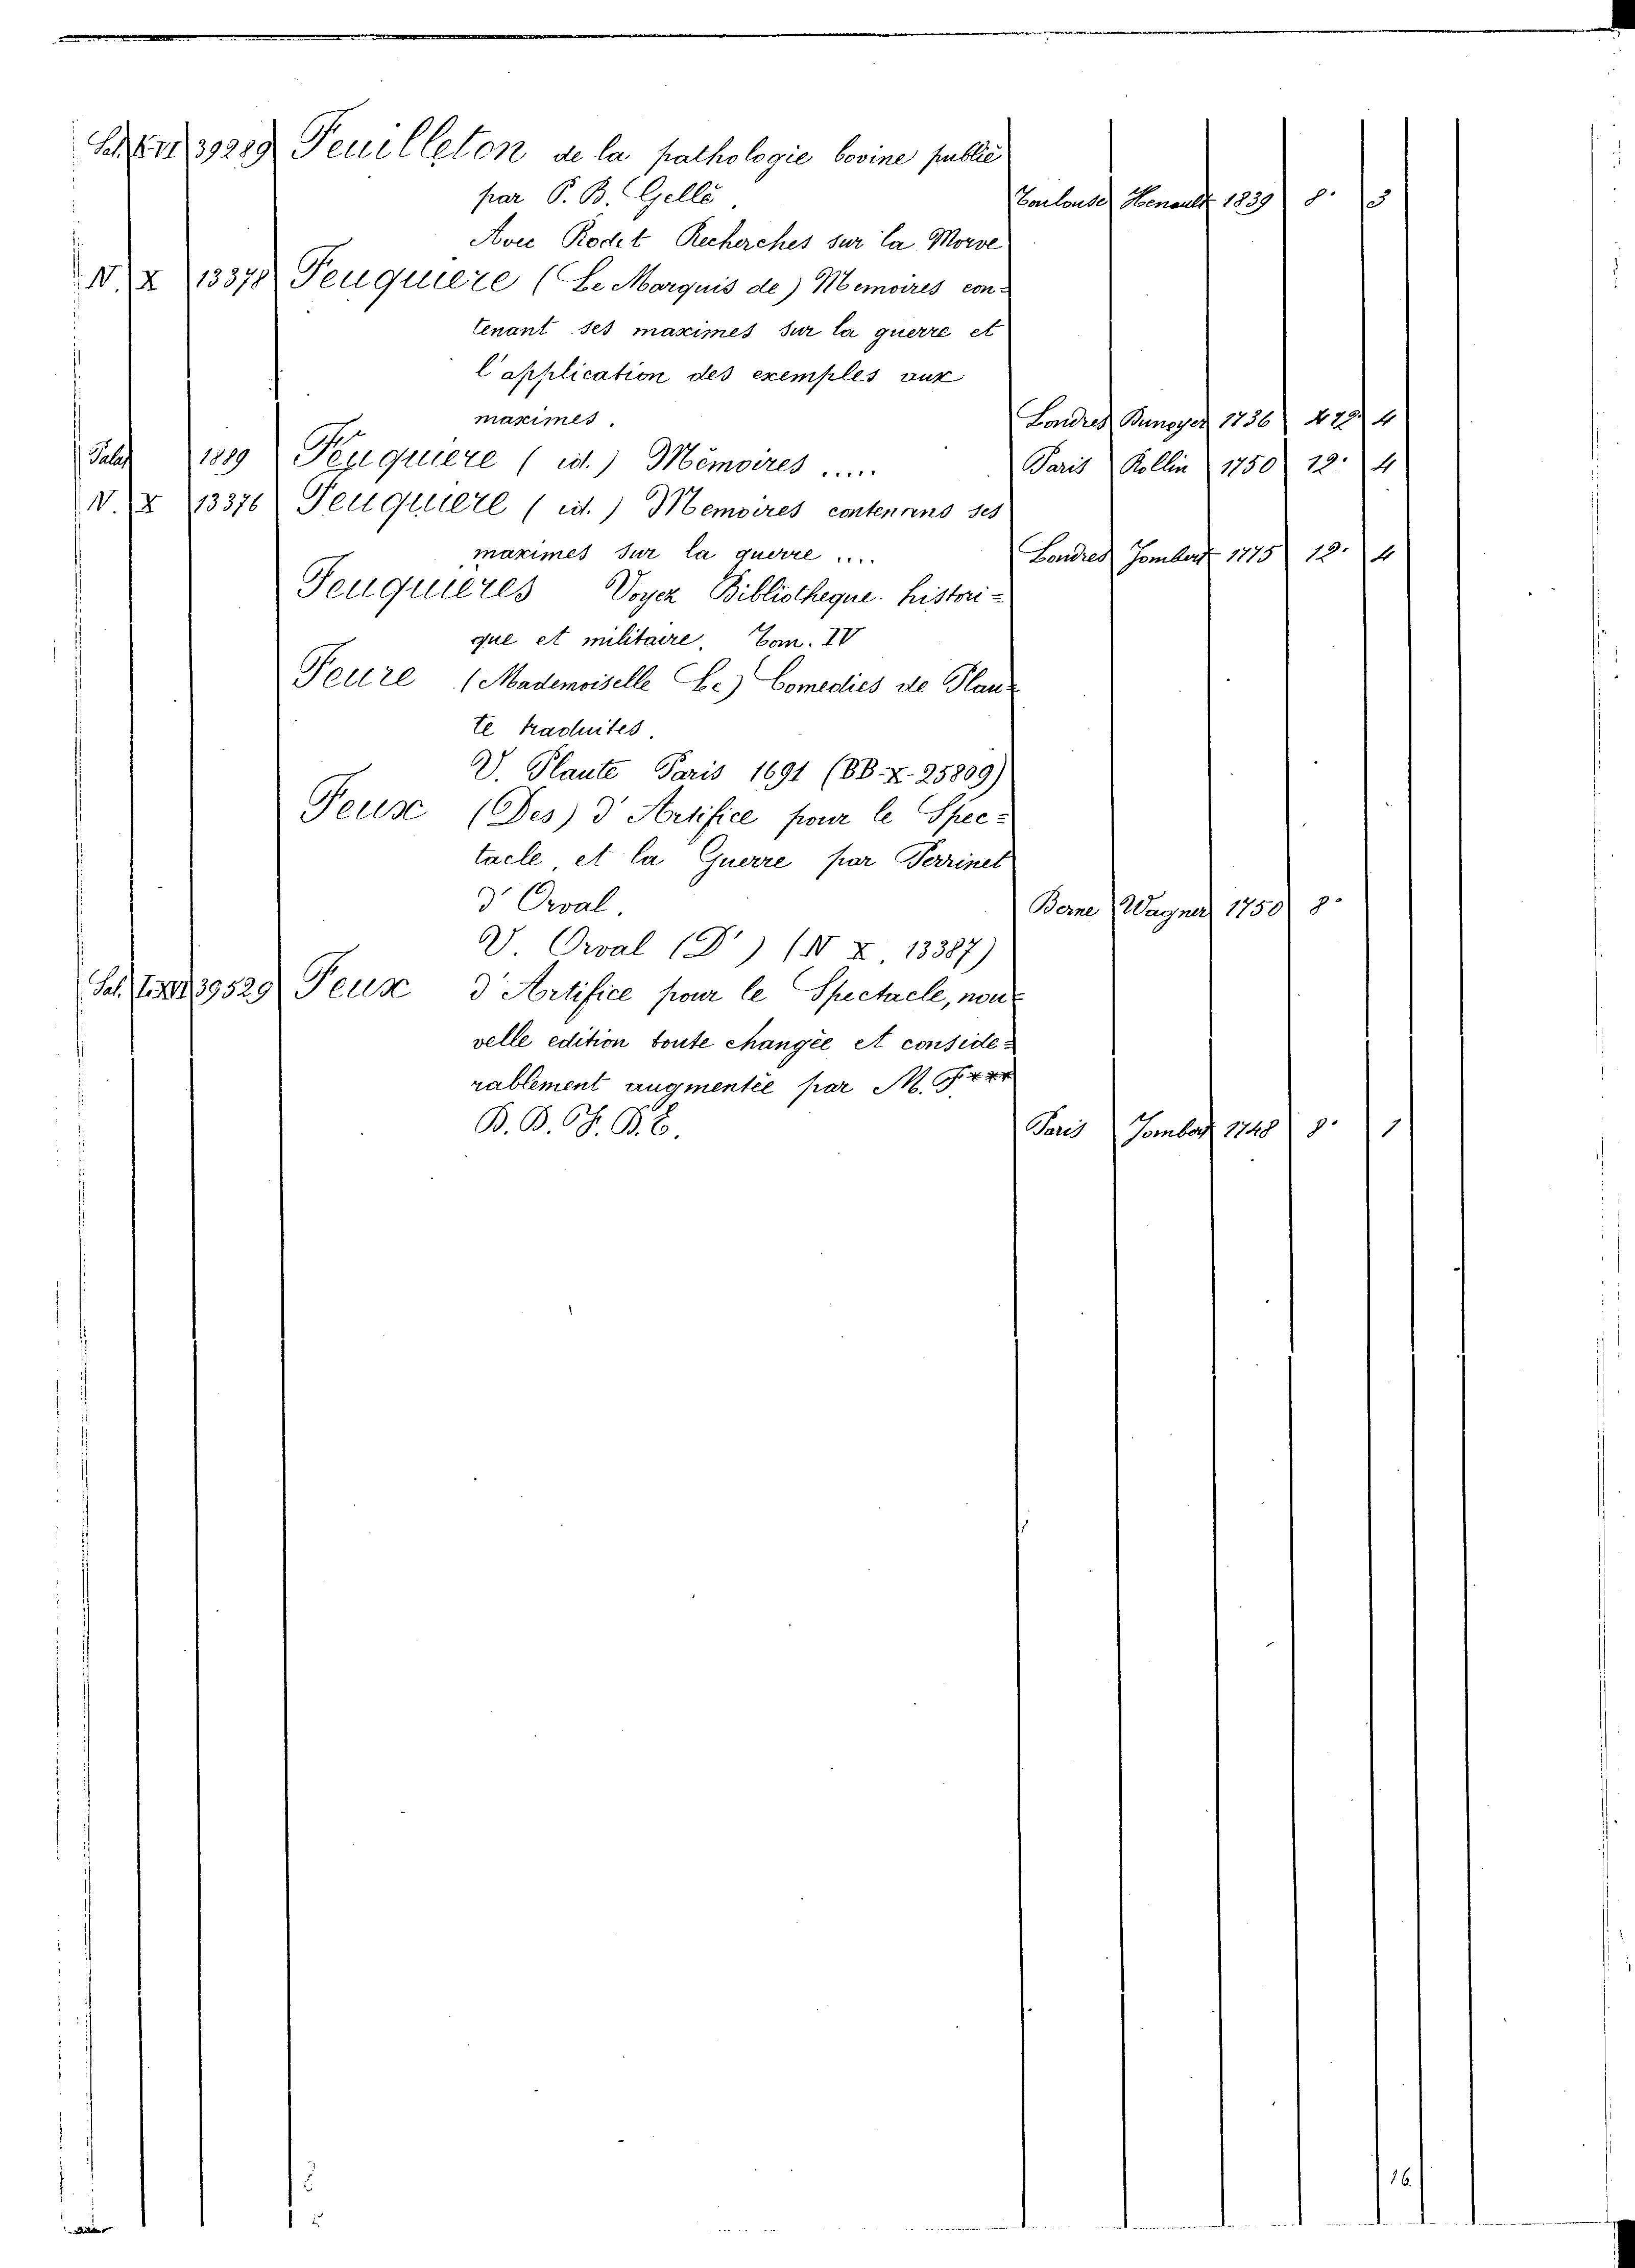 39289 Feuilleton de la pathologie bovine publié
par P. B. Gellé. Toulouse Henault 1839 8. 3
Avec Rodet Recherches sur la Morve
N. X 13378 Feuquiere (Le Marquis de) Memoires con=
tenant ses maximes sur la guerre et
l'application des exemples aux
maximes. Londres Dunoyer 1736 4
Palat 1889 Feuquiere (id.) Mémoires ..... Paris Rollin 1750 12. 4
N. X 13376 Feuquiere (id.) Memoires contenans ses
maximes sur la guerre .... Londres Jombert 1775 12. 4
Feuquieres Voyez Bibliotheque histori=
que et militaire. Tom. IV
Feure (Mademoiselle Le) Comedies de Plau=
te traduites.
V. Plaute Paris 1691 (BB. X. 25809)
Feux (Des) d'Artifice pour le Spec=
tacle, et la Guerre par Perrinet
d'Orval. Berne Wagner 1750 8.
V. Orval (D') (N X. 13387)
Sal. 39529 Feux d'Artifice pour le Spectacle, nou=
velle edition toute changée et conside=
rablement augmentée par M. F***
Paris Jombert 1748 8. 1
16.